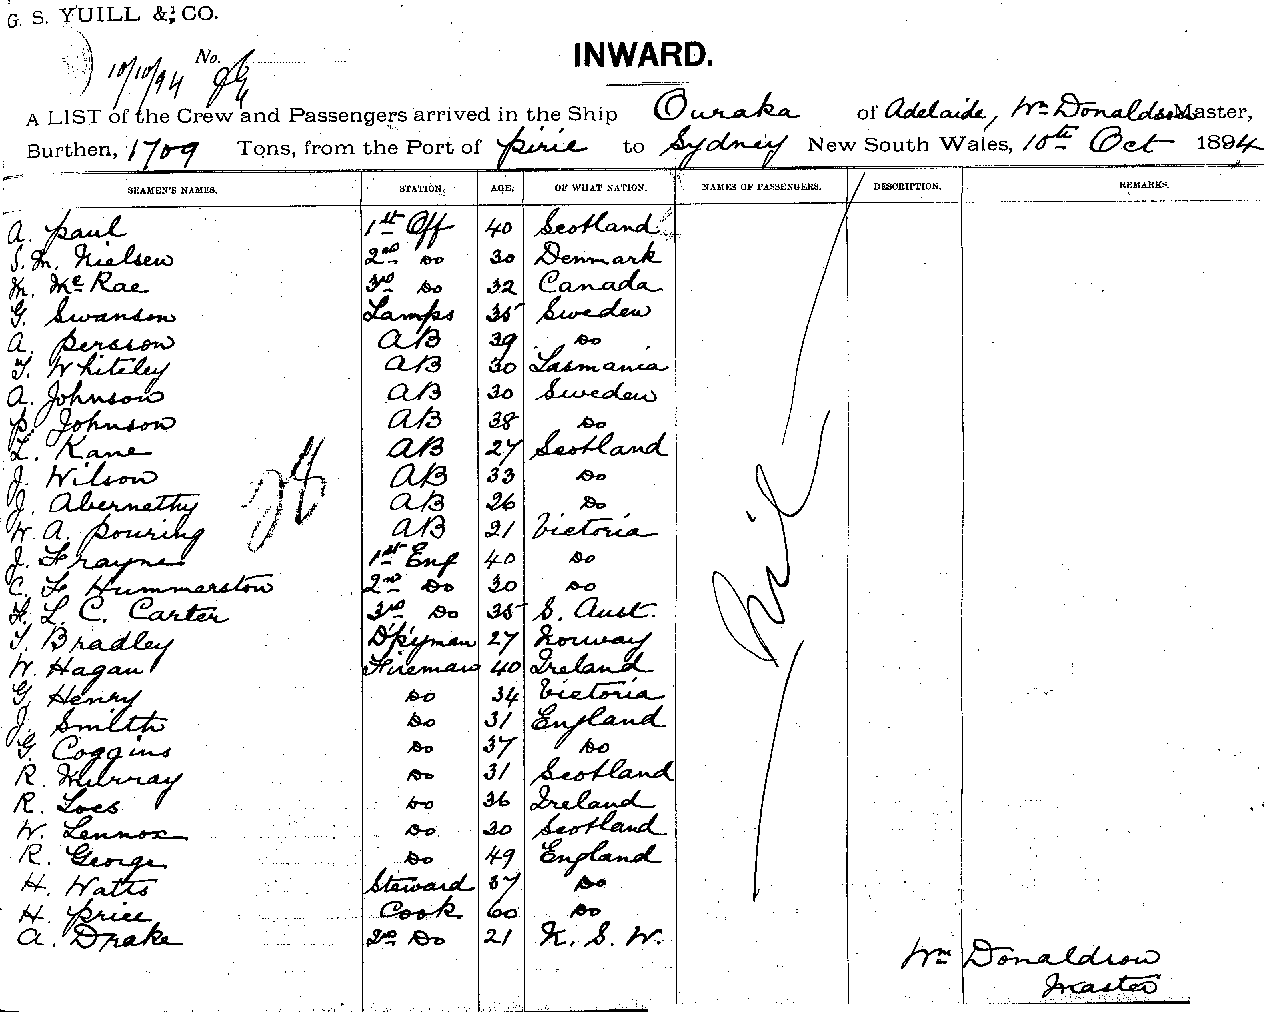 G. S. YUILL & CO.
10/10/94 No.
INWARD.
A LIST of the Crew and Passengers arrived in the Ship Ouraka of Adelaide, Wm Donaldson Master,
Burthen, 1709 Tons, from the Port of Pirie to Sydney New South Wales, 10th Oct 1894
SEAMEN'S NAMES. STATION. AGE. OF WHAT NATION. NAMES OF PASSENGERS. DESCRIPTION. REMARKS.
A. Paul 1st Off 40 Scotland
S. M. Nielsen 2nd Do 30 Denmark
M. McRae 3rd Do 32 Canada
G. Swanson Lamps 35 Sweden
A. Persson AB 39 Do
T. Whiteley AB 30 Tasmania
A. Johnson AB 30 Sweden
P. Johnson AB 38 Do
L. Kane AB 27 Scotland
J. Wilson AB 33 Do
J. Abernethy AB 26 Do
W. A. Pouring AB 21 Victoria
J. Frayne 1st Eng 40 Do
C. F. Hummerston 2nd Do 30 Do
F. L. C. Carter 3rd Do 35 S. Aust.
T. Bradley D'kyman 27 Norway
W. Hagan Fireman 40 Ireland
G. Henry Do 34 Victoria
J. Smith Do 31 England
G. Coggins Do 37 Do
R. Murray Do 31 Scotland
R. Loes Do 36 Ireland
W. Lennox Do 30 Scotland
R. George Do 49 England
H. Watts Steward 37 Do
H. Price Cook 60 Do
A. Drake 2nd Do 21 N. S. W.
Nil
Wm Donaldson
Master